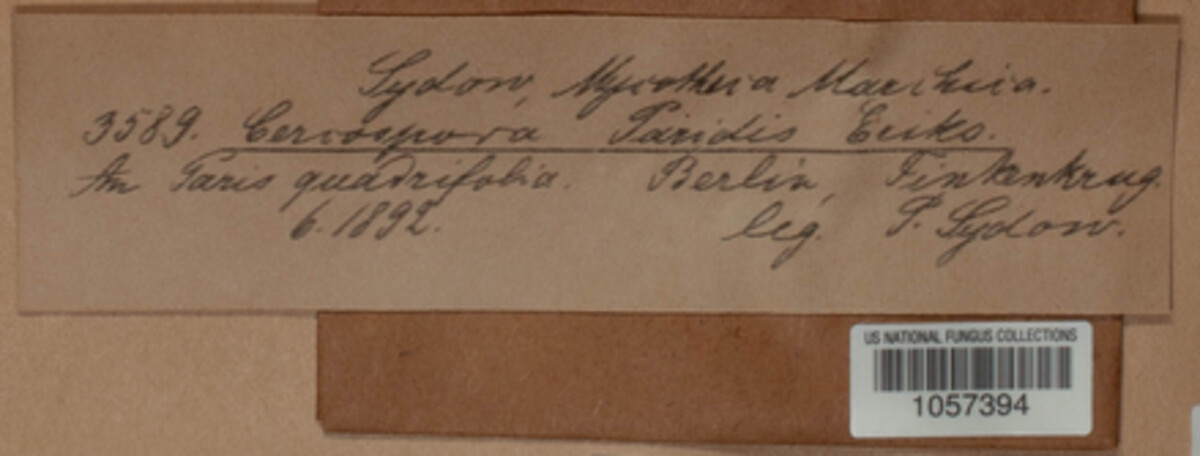 Sydow, Mycotheca Marchica.
3589. Cercospora Paridis Eriks.
An Paris quadrifolia. Berlin, Finkenkrug.
6. 1892. leg. P. Sydow.
US NATIONAL FUNGUS COLLECTIONS
1057394